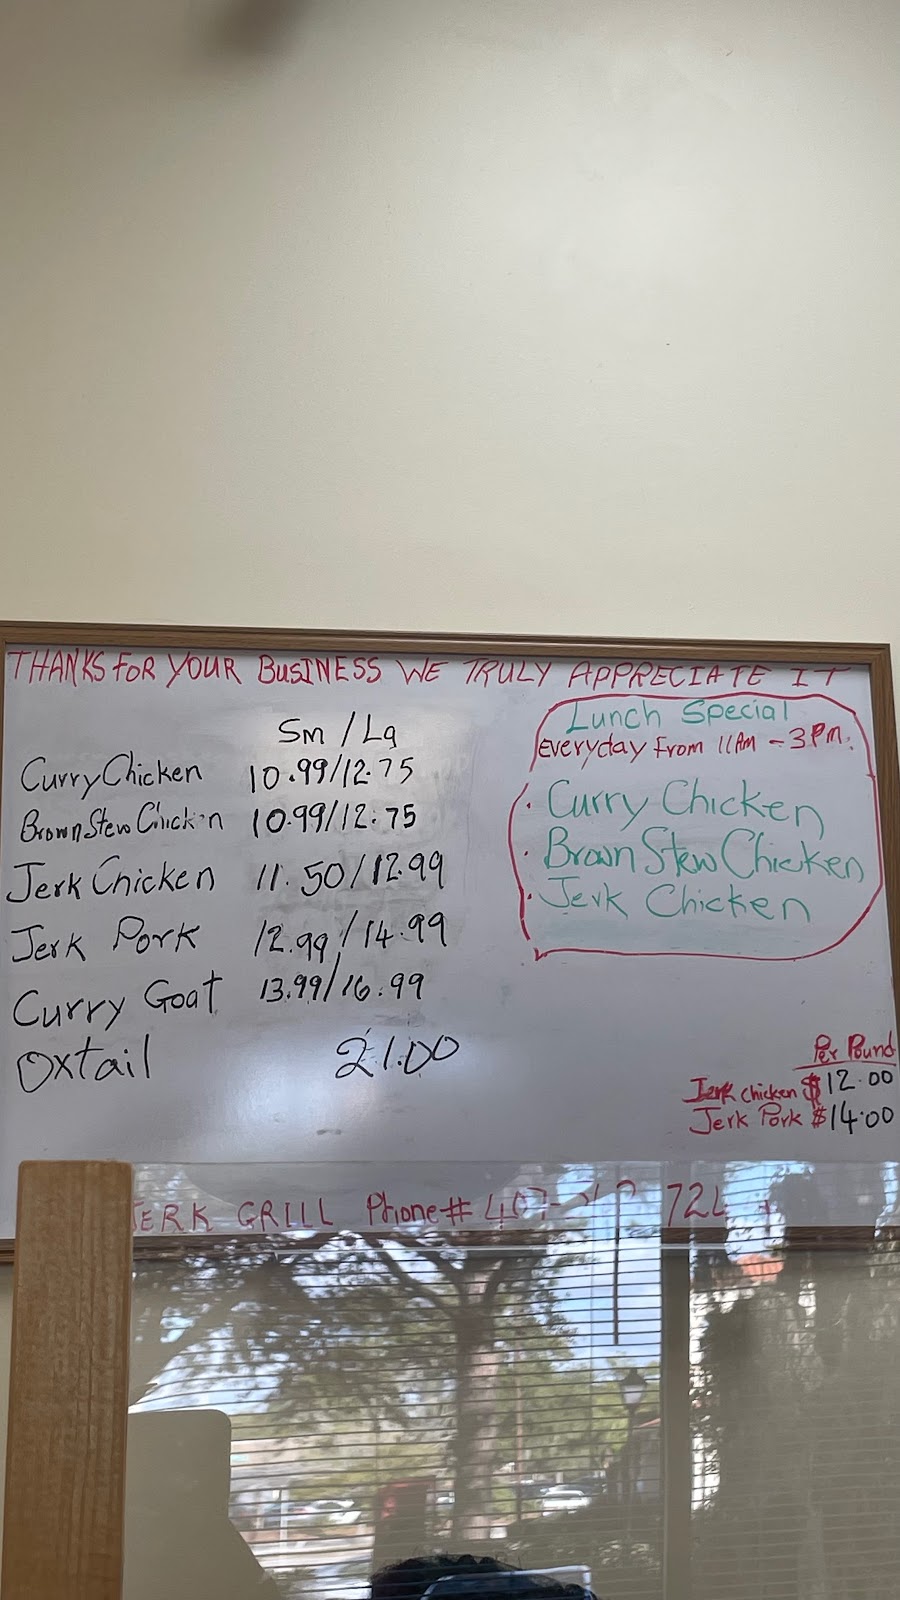 THANKS FOR YOUR BUSINESS WE TRULY APPRECIATE IT
Sm / Lg
Curry Chicken 10.99/12.75
Brown Stew Chicken 10.99/12.75
Jerk Chicken 11.50/12.99
Jerk Pork 12.99/14.99
Curry Goat 13.99/16.99
Oxtail 21.00
Lunch Special
Everyday From 11AM - 3PM.
· Curry Chicken
· Brown Stew Chicken
· Jerk Chicken
Per Pound
Jerk chicken $12.00
Jerk Pork $14.00
JERK GRILL Phone# 407-